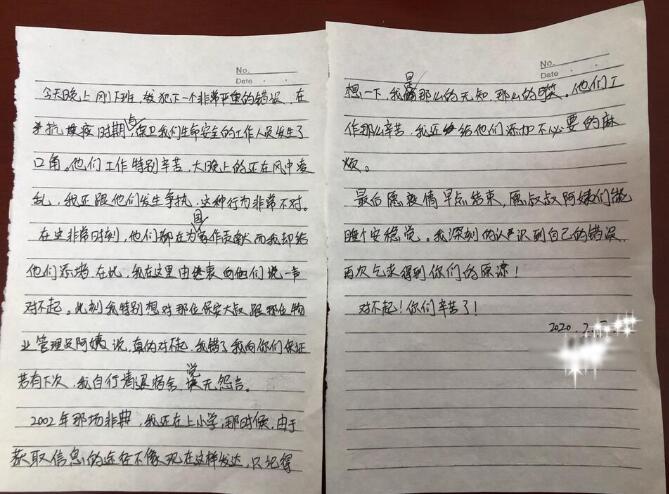 No.
Date
今天晚上刚下班，我犯下一个非常严重的错误，在
抗疫时期与保卫我们生命安全的工作人员发生了
口角。他们工作特别辛苦，大晚上的还在风中凌
乱，我还跟他们发生争执，这种行为非常不对。
在这非常时刻，他们都在为国作贡献而我却给
他们添堵在此，我在这里由衷向他们说一声
对不起。此刻我特别想对那位保安大叔跟那位物
业管理员阿姨说，真的对不起，我错了我向你们保证
若有下次，我自行清退宿舍，毫无怨言。
2002年那场非典，我还在上小学，那时候，由于
获取信息的途径不像现在这样发达，只记得
No.
Date
想一下，我是那么的无知，那么的可笑，他们工
作那么辛苦，我还给他们添加不必要的麻
烦。
最后愿疫情早点结束，愿叔叔阿姨们能
睡个安稳觉。我深刻的认识到自己的错误，
再次乞求得到你们的原谅！
对不起！你们辛苦了！
2020.2.